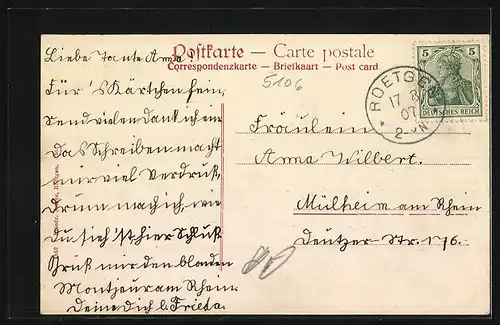 Postkarte — Carte postale
Correspondenzkarte — Briefkaart — Post card
5106
5 5
DEUTSCHES REICH
ROETGEN
17 8
07
2-3N
Liebe Tante Anna!
Für's Kärtchen fein,
send vielen Dank ich ein
Das Schreiben macht
mir viel Verdruß,
drum mach ich, wie
du siehst hier Schluß
Grüß mir den blonden
Montjeur am Rhein
Deine dich l. Frieda.
Fräulein
Anna Wilbert.
Mülheim am Rhein
Deutzer-Str. 176.